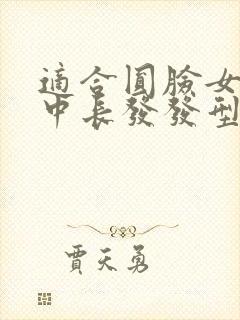 適合圓臉女
中長發發型
賈天勇